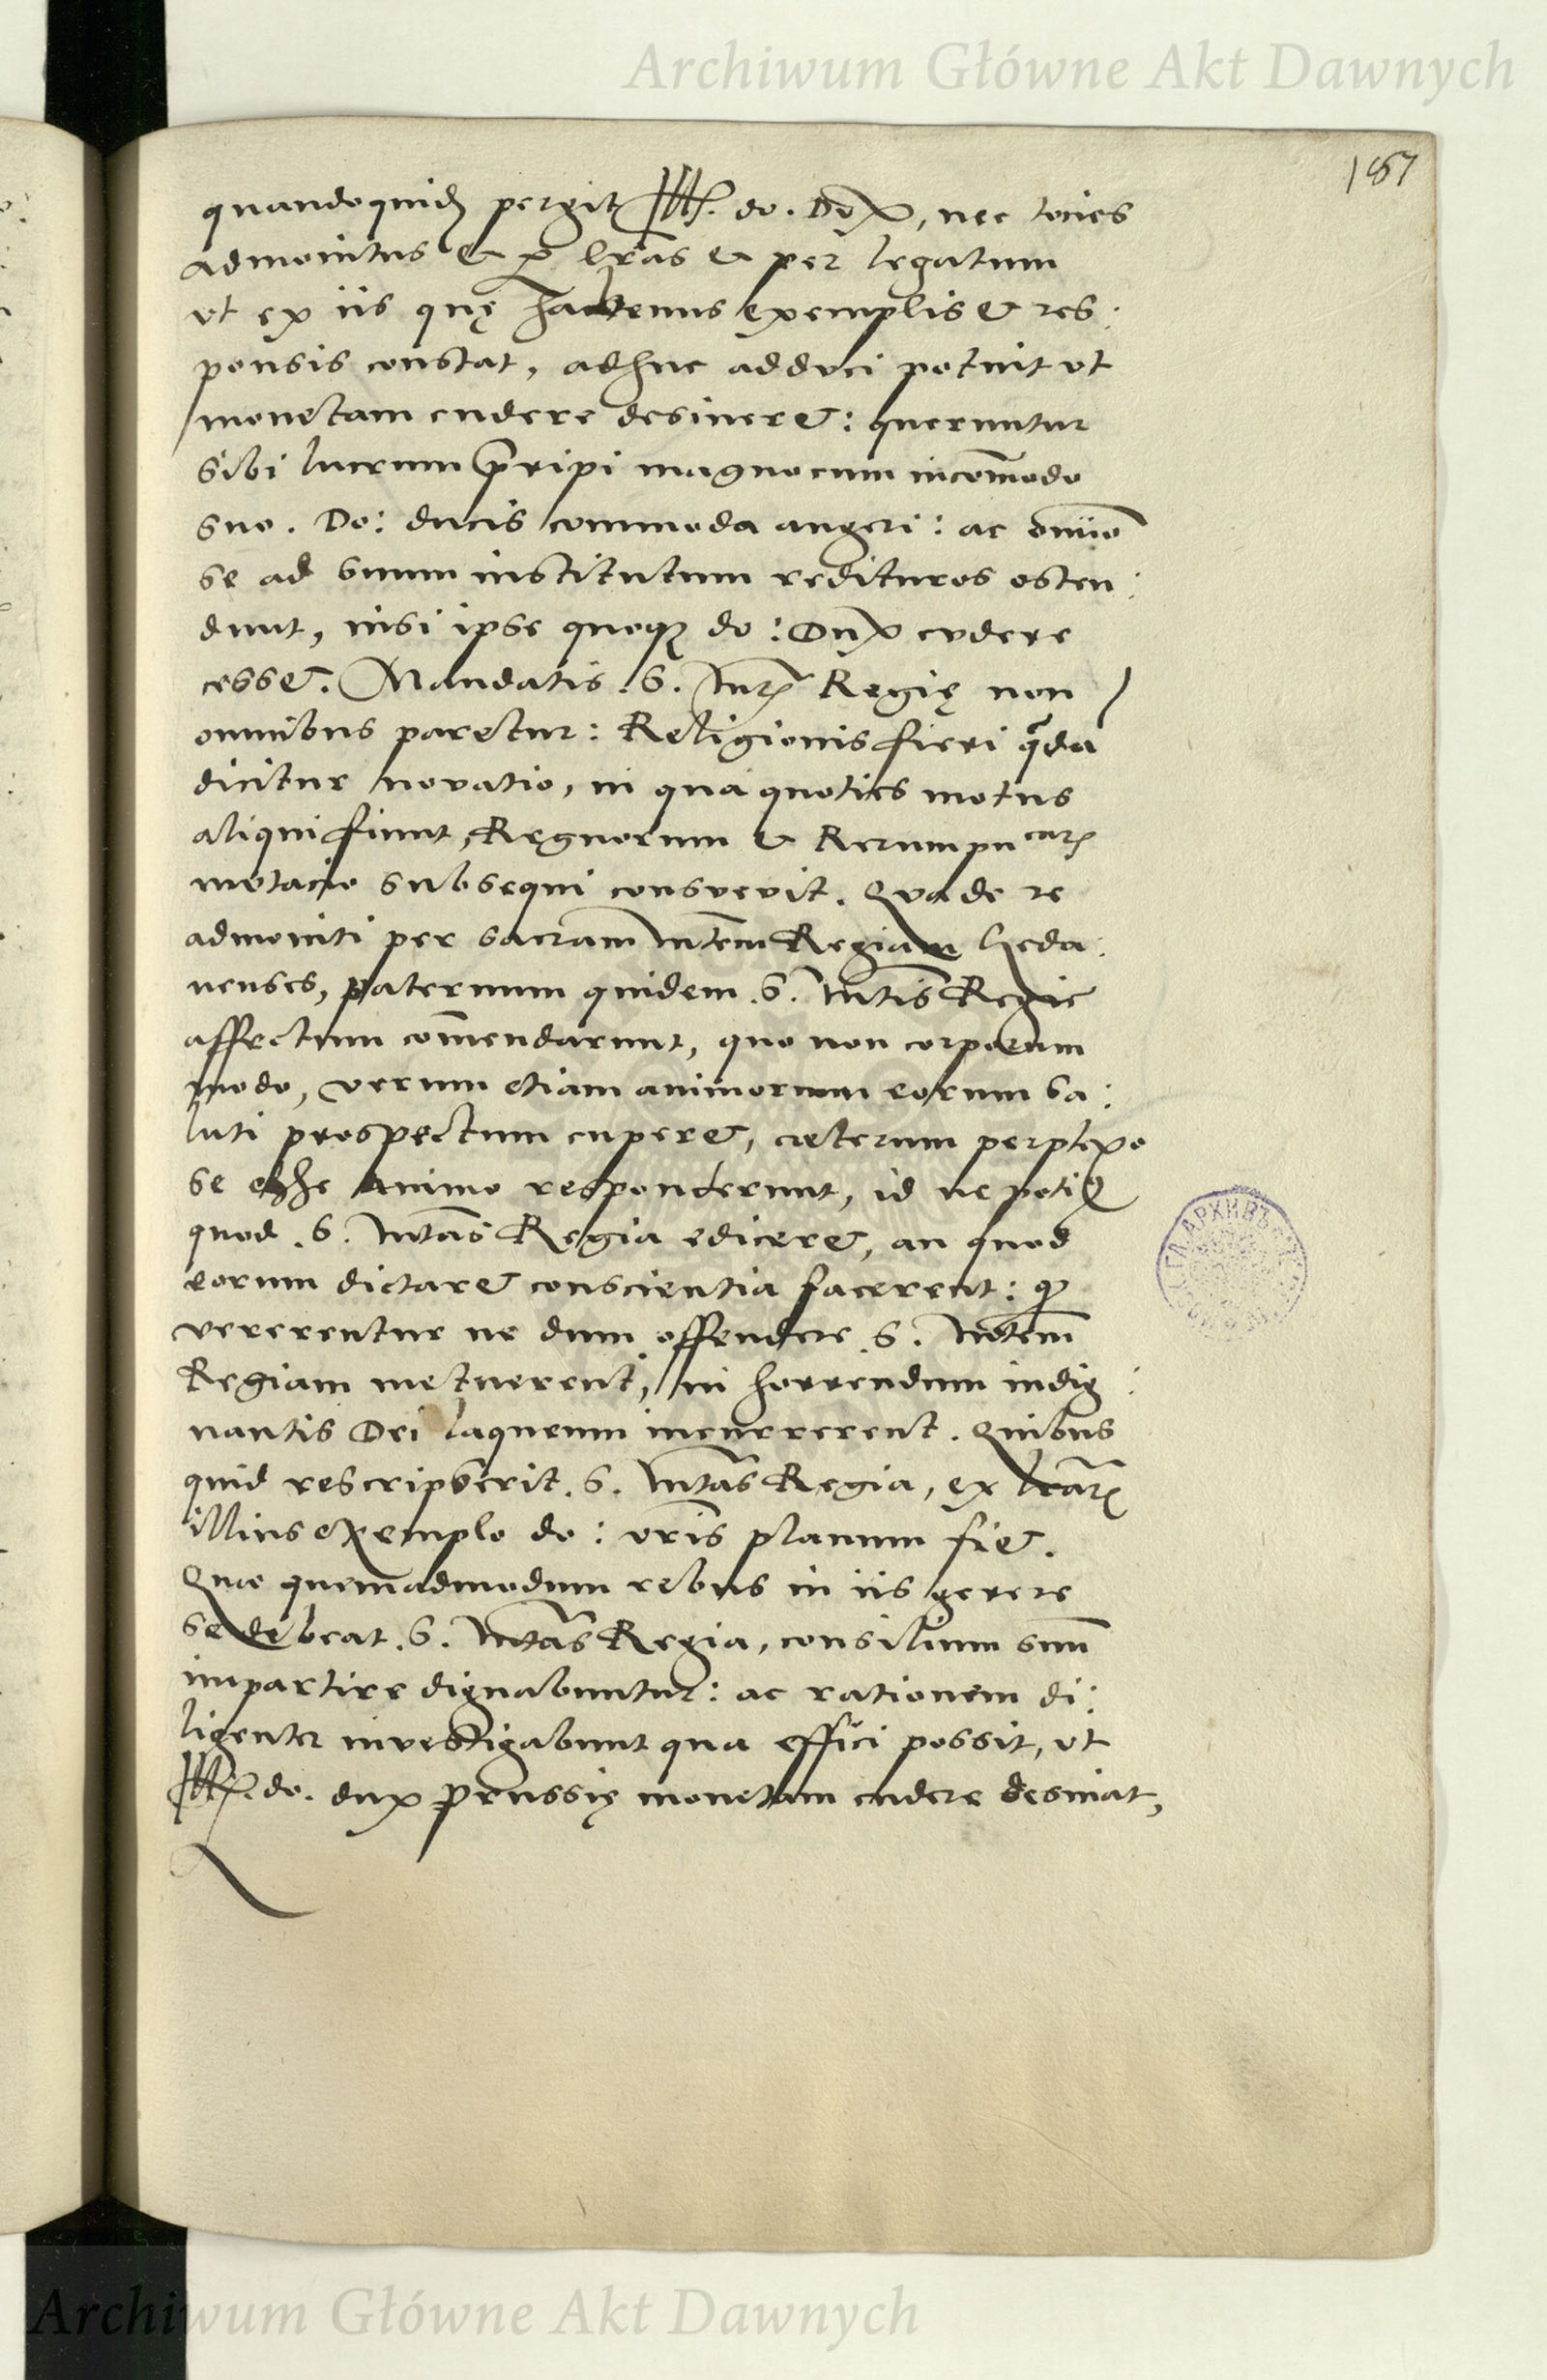 Archiwum Główne Akt Dawnych
187
quandoquid pergit Ill. do. Dux, nec toties
admonitus & p lr̃as & per legatum
vt ex iis quę hactenus exemplis & res:
ponsis constat, adhuc adduci potuit vt
monetam cudere desineret: queruntur
sibi lucrum p̃ripi magno cum incom̃odo
suo. Do: ducis commoda augeri: ac om̃io
se ad suum institutum redituros osten:
dunt, nisi ipse quoq do: Dux cudere
cesset. Mandatis .S. Mtis Regię non
omnibus paretur: Religionis fieri q̃da
dicitur novatio, in qua quoties motus
aliqui fiunt, Regnorum & Rerumpu carũ
mutacio subsequi consuevit. Qua de re
admoniti per sacram Mtem Regiam Geda:
nenses, paternum quidem .S. Mtis Regie
affectum com̃endarunt, quo non corporum
modo, verum etiam animorum eorum sa:
luti prospectum cuperet, cæterum perplexo
se esse animo responderunt, id ne poti9
quod .S. Mtas Regia ediceret, an quod
eorum dictaret conscientia facerent: q
vererentur ne dum offendere .S. Mtem
Regiam metuerent, in horrendum indig:
nantis Dei laqueum incurrerent. Quibus
quid rescripserit .S. Mtas Regia, ex lr̃arũ
illius exemplo do: vris planum fiet.
Quæ quemadmodum rebus in iis gerere
se debeat .S. Mtas Regia, consilium suũ
impartire dignabuntur: ac rationem di:
ligenter investigabunt qua effici possit, vt
Ill. do. dux Prussię monetam cudere desinat,
Archiwum Główne Akt Dawnych